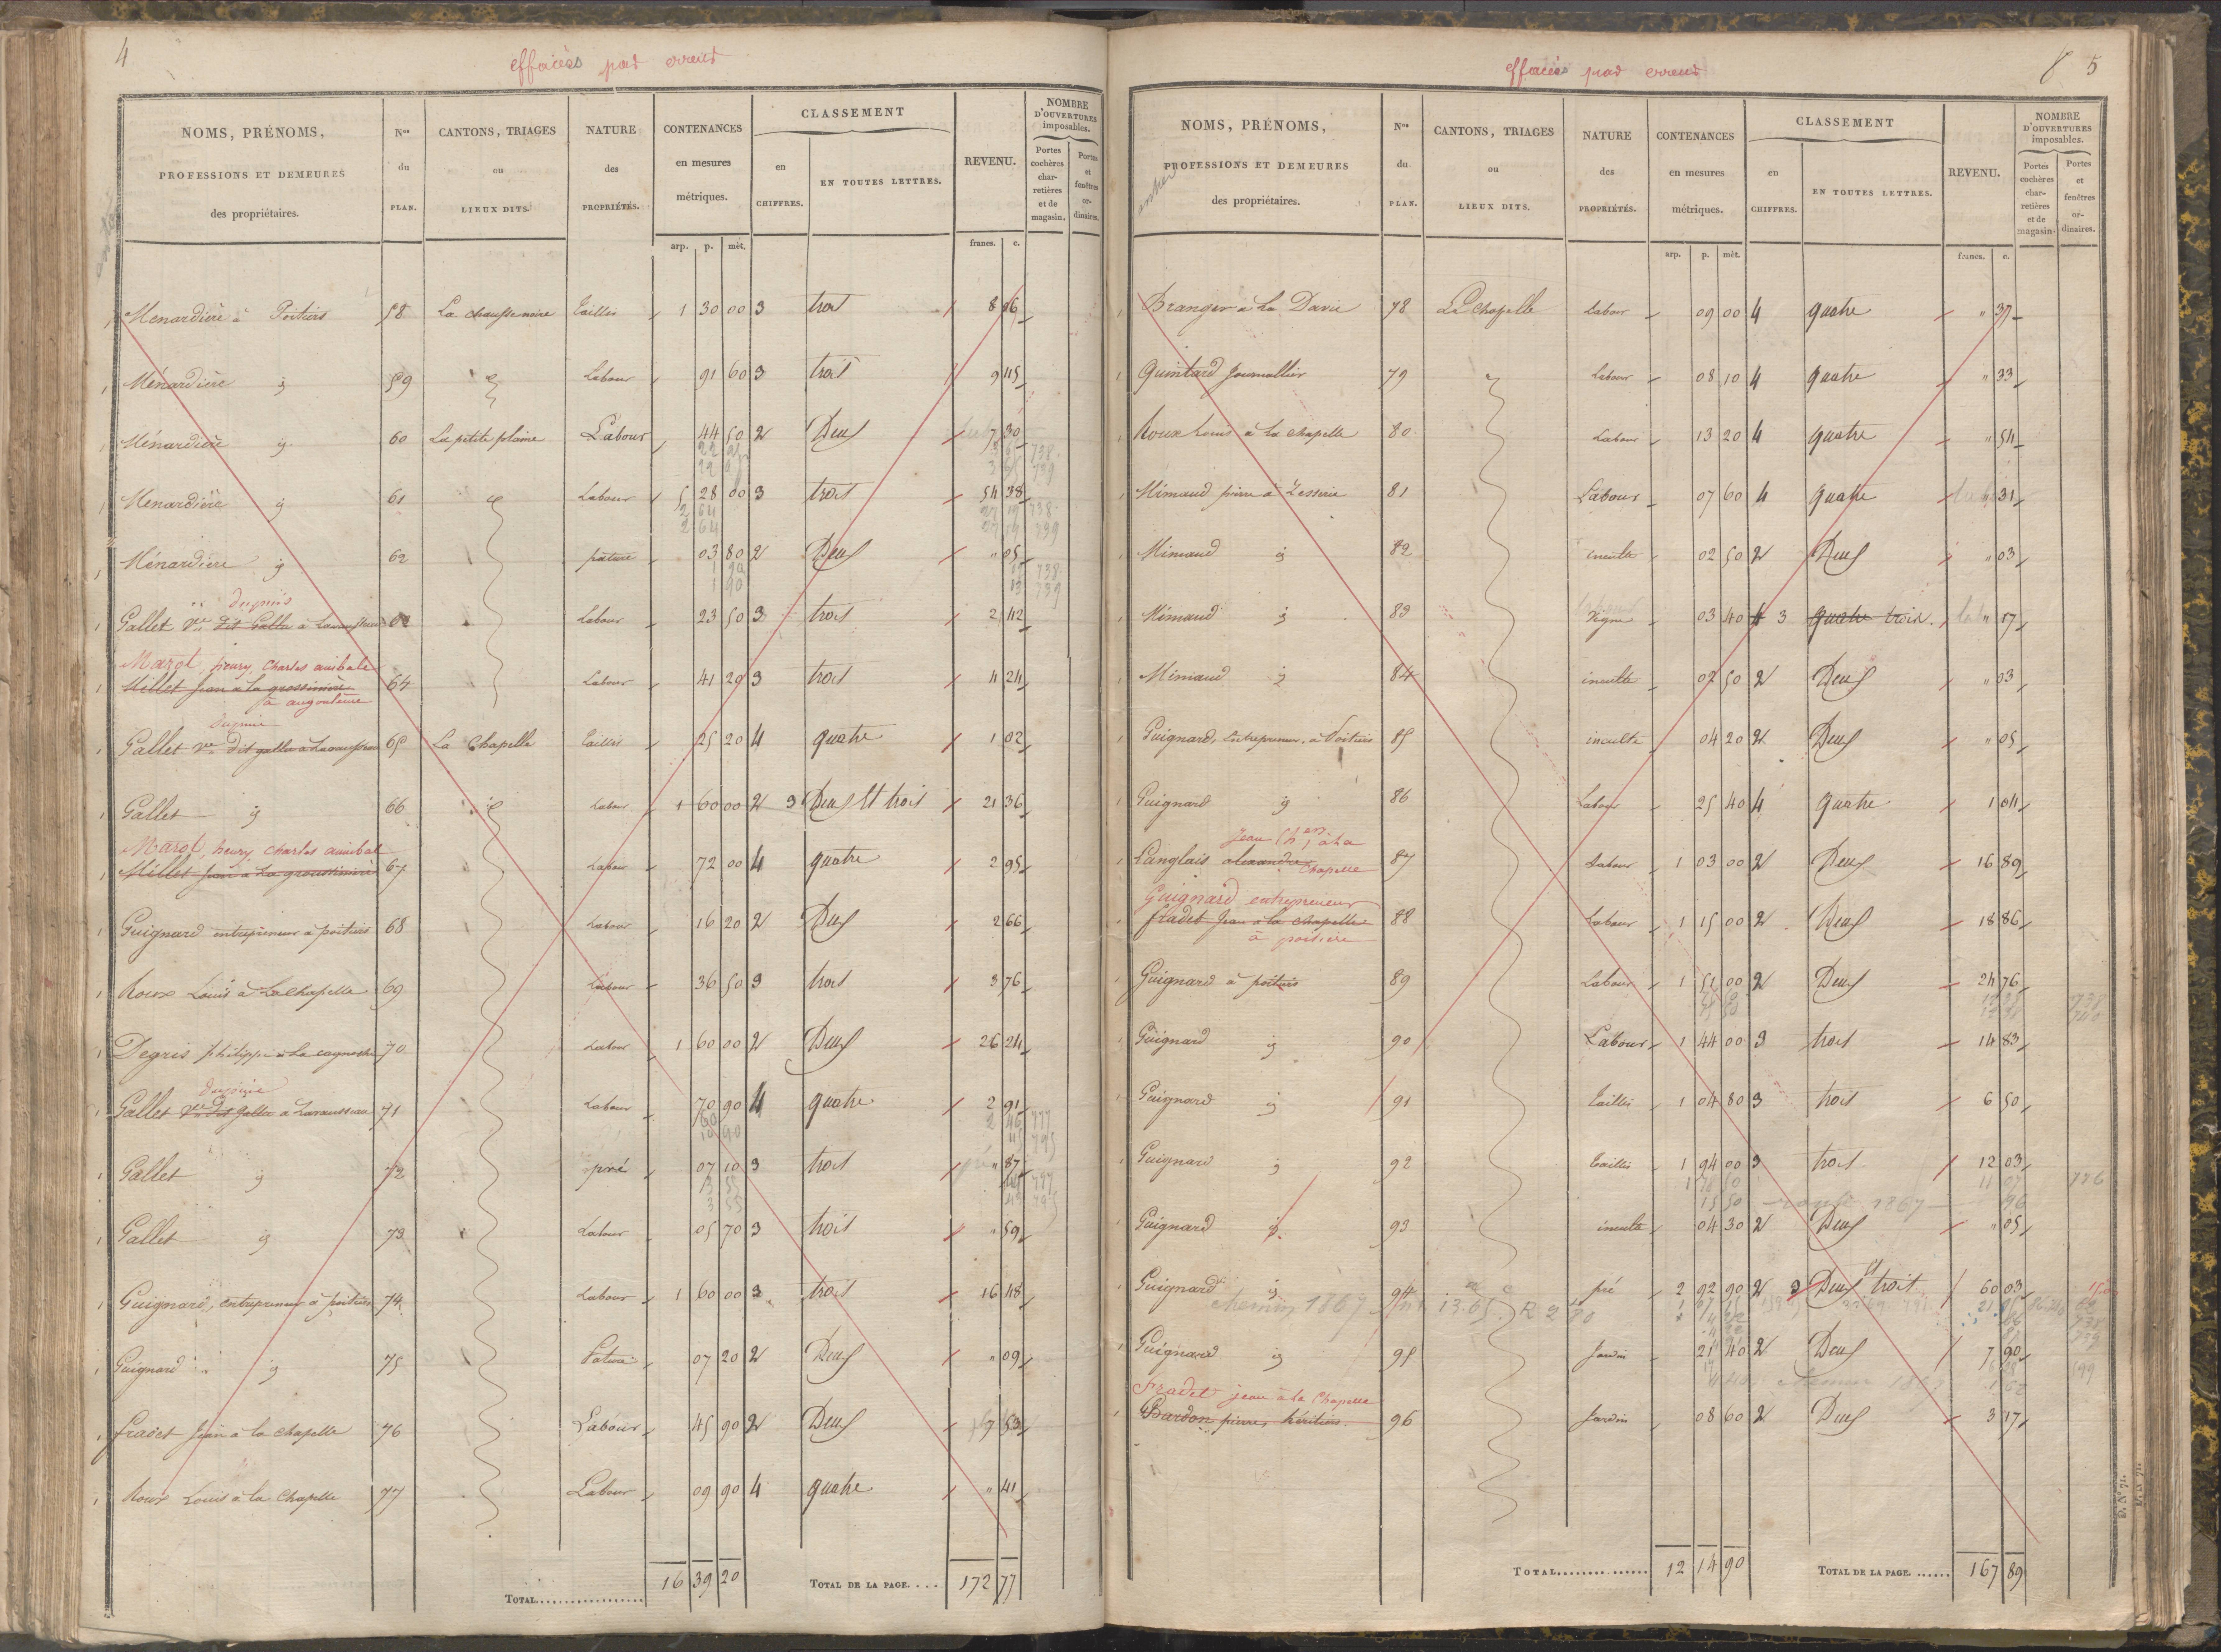 4
effacées par erreur
NOMS, PRÉNOMS, PROFESSIONS ET DEMEURES des propriétaires.
Nos du PLAN.
CANTONS, TRIAGES ou LIEUX DITS.
NATURE des PROPRIÉTÉS.
CONTENANCES en mesures métriques.
CLASSEMENT
en CHIFFRES.
EN TOUTES LETTRES.
REVENU.
NOMBRE D'OUVERTURES imposables.
Portes cochères charretières et de magasin.
Portes et fenêtres ordinaires.
arp. p. mèt. francs. c.
Menardière à Poitiers 58 La chausse noire Taillis 1 30 00 3 trois 8 06
Menardière id 59 id Labour 91 60 3 trois 9 45
Ménardière id 60 La petite plaine Labour 44 50 2 Deux 7 30
738
739
Menardière id 61 id Labour 5 28 00 3 trois 54 38
2 64 27 19 738
2 64 27 19 739
Ménardière id 62 pature 03 80 2 Deux " 05
1 90 738
1 90 739
Dupuis
Gallet Ve dit Galla à Lavausseau Labour 23 50 3 trois 2 42
Marot henry Charles annibale
Millet jean à la grossinière 64 Labour 41 20 3 trois 4 24
à angoulême
Dupuis
Gallet Ve dit galla à Lavausseau 65 La Chapelle Taillis 25 20 4 quatre 1 02
Gallet id 66 id Labour 1 60 00 2 3 Deux et trois 21 36
Marot, henry Charles annibal
Millet jean à La groussinière 67 Labour 72 00 4 quatre 2 95
Guignard entrepreneur à poitiers 68 Labour 16 20 2 Deux 2 66
Roux Louis à La Chapelle 69 Labour 36 50 3 trois 3 76
Degris philippe à la cagnoche 70 Labour 1 60 00 2 Deux 26 24
Dupuis
Gallet Ve dit Galla à Lavausseau 71 Labour 70 90 4 quatre 2 91
60 2 46 777
10 90 45 795
Gallet id 72 pré 07 10 3 trois " 87
3 55 777
3 55 795
Gallet id 73 Labour 05 70 3 trois " 59
Guignard, entrepreneur à poitiers 74 Labour 1 60 00 3 trois 16 48
Guignard id 75 Pature 07 20 2 Deux " 09
fradet Jean à la chapelle 76 Labour 45 90 2 Deux 7 53
Roux Louis à la Chapelle 77 Labour 09 90 4 quatre " 41
TOTAL.................. 16 39 20 TOTAL DE LA PAGE.... 172 77
5
effacées par erreur
NOMS, PRÉNOMS, PROFESSIONS ET DEMEURES des propriétaires.
Nos du PLAN.
CANTONS, TRIAGES ou LIEUX DITS.
NATURE des PROPRIÉTÉS.
CONTENANCES en mesures métriques.
CLASSEMENT
en CHIFFRES.
EN TOUTES LETTRES.
REVENU.
NOMBRE D'OUVERTURES imposables.
Portes cochères charretières et de magasin.
Portes et fenêtres ordinaires.
arp. p. mèt. francs. c.
Branger à la Davie 78 La Chapelle Labour 09 00 4 quatre " 37
Quintard Journallier 79 id Labour 08 10 4 quatre " 33
Roux Louis à la chapelle 80 Labour 13 20 4 quatre " 54
Mimaud pierre à 81 Labour 07 60 4 quatre " 31
Mimaud id 82 inculte 02 50 2 Deux " 03
Mimaud id 83 Vigne 03 40 4 3 quatre trois. " 57
Mimaud id 84 inculte 02 50 2 Deux " 03
Guignard, entrepreneur à Poitiers 85 inculte 04 20 2 Deux " 05
Guignard id 86 Labour 25 40 4 quatre 1 04
Jean Chen, à la
Langlais alexandre Chapelle 87 Labour 1 03 00 2 Deux 16 89
Guignard entrepreneur
fradet Jean à la Chapelle 88 Labour 1 15 00 2 Deux 18 86
à poitiers
Guignard à poitiers 89 Labour 1 51 00 2 Deux 24 76
738
Guignard id 90 Labour 1 44 00 3 trois 14 83
Guignard id 91 Taillis 1 04 80 3 trois 6 50
Guignard id 92 Taillis 1 94 00 3 trois 12 03
11 07 776
15 50 1867 96
Guignard id 93 inculte 04 30 2 Deux " 05
Guignard id 94 pré 2 92 90 2 3 Deux et trois 60 03
chemin 1867
Guignard id 95 Jardin 21 40 2 Deux 7 90
chemin
Fradet jean à la Chapelle
Bardon pierre, héritiers 96 Jardin 08 60 2 Deux 3 17
TOTAL.............. 12 14 90 TOTAL DE LA PAGE....... 167 89
D. No 71.